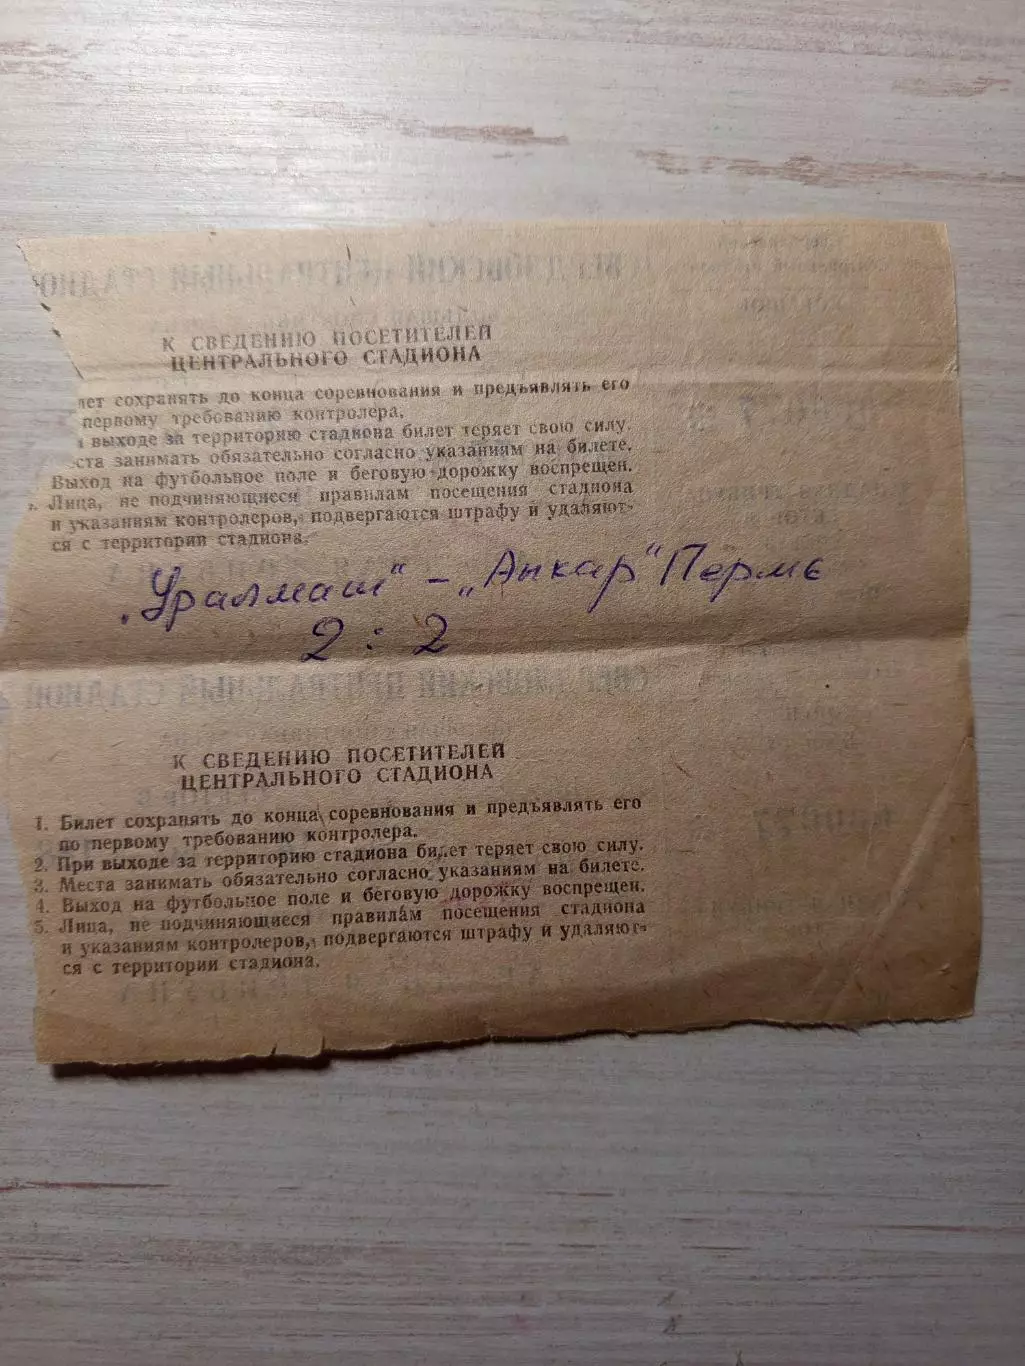 К СВЕДЕНИЮ ПОСЕТИТЕЛЕЙ
ЦЕНТРАЛЬНОГО СТАДИОНА
лет сохранять до конца соревнования и предъявлять его
первому требованию контролера.
выходе за территорию стадиона билет теряет свою силу.
ста занимать обязательно согласно указаниям на билете.
Выход на футбольное поле и беговую дорожку воспрещен.
Лица, не подчиняющиеся правилам посещения стадиона
и указаниям контролеров, подвергаются штрафу и удаляют-
ся с территории стадиона.
„Уралмаш" – „Анкар" Пермь
2 : 2
СВЕРДЛОВСКИЙ ЦЕНТРАЛЬНЫЙ СТАДИОН
К СВЕДЕНИЮ ПОСЕТИТЕЛЕЙ
ЦЕНТРАЛЬНОГО СТАДИОНА
1. Билет сохранять до конца соревнования и предъявлять его
по первому требованию контролера.
2. При выходе за территорию стадиона билет теряет свою силу.
3. Места занимать обязательно согласно указаниям на билете.
4. Выход на футбольное поле и беговую дорожку воспрещен.
5. Лица, не подчиняющиеся правилам посещения стадиона
и указаниям контролеров, подвергаются штрафу и удаляют-
ся с территории стадиона.